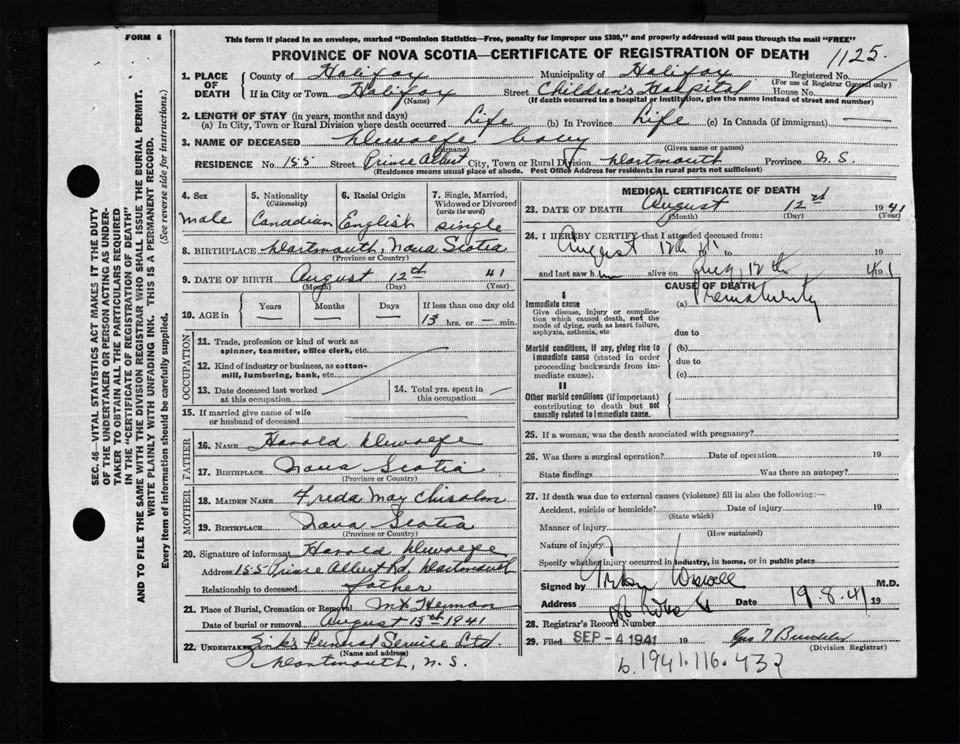 FORM 6
This form if placed in an envelope, marked "Dominion Statistics—Free, penalty for improper use $300," and properly addressed will pass through the mail "FREE"
PROVINCE OF NOVA SCOTIA—CERTIFICATE OF REGISTRATION OF DEATH
1125
SEC. 46—VITAL STATISTICS ACT MAKES IT THE DUTY
OF THE UNDERTAKER OR PERSON ACTING AS UNDER-
TAKER TO OBTAIN ALL THE PARTICULARS REQUIRED
IN THE "CERTIFICATE OF REGISTRATION OF DEATH"
AND TO FILE THE SAME WITH THE DIVISION REGISTRAR WHO SHALL ISSUE THE BURIAL PERMIT.
WRITE PLAINLY WITH UNFADING INK. THIS IS A PERMANENT RECORD.
Every item of information should be carefully supplied. (See reverse side for instructions.)
1. PLACE OF DEATH
County of Halifax Municipality of Halifax Registered No.
(For use of Registrar General only)
If in City or Town Halifax Street Children's Hospital House No.
(Name) (If death occurred in a hospital or institution, give the name instead of street and number)
2. LENGTH OF STAY (in years, months and days)
(a) In City, Town or Rural Division where death occurred Life (b) In Province Life (c) In Canada (if immigrant) —
3. NAME OF DECEASED
(Surname) (Given name or names)
RESIDENCE No. 155 Street Prince Albert City, Town or Rural Division Dartmouth Province N.S
(Residence means usual place of abode. Post Office Address for residents in rural parts not sufficient)
4. Sex
male
5. Nationality
(Citizenship)
Canadian
6. Racial Origin
English
7. Single, Married, Widowed or Divorced
(write the word)
single
8. BIRTHPLACE Dartmouth, Nova Scotia
(Province or Country)
9. DATE OF BIRTH August 12th 41
(Month) (Day) (Year)
10. AGE in
Years — Months — Days — If less than one day old
13 hrs. or — min.
OCCUPATION
11. Trade, profession or kind of work as
spinner, teamster, office clerk, etc.
12. Kind of industry or business, as cotton-
mill, lumbering, bank, etc.
13. Date deceased last worked
at this occupation
14. Total yrs. spent in
this occupation
15. If married give name of wife
or husband of deceased
FATHER
16. NAME Harold
17. BIRTHPLACE Nova Scotia
(Province or Country)
MOTHER
18. MAIDEN NAME Freda May Chisolm
19. BIRTHPLACE Nova Scotia
(Province or Country)
20. Signature of informant Harold
Address 155 Prince Albert Rd, Dartmouth
Relationship to deceased father
21. Place of Burial, Cremation or Removal Mt Hermon
Date of burial or removal August 13th 1941
22. UNDERTAKER Funeral Service Ltd.
(Name and address)
Dartmouth, N.S.
MEDICAL CERTIFICATE OF DEATH
23. DATE OF DEATH August 12 1941
(Month) (Day) (Year)
24. I HEREBY CERTIFY that I attended deceased from:
August 12th to 19
and last saw him alive on Aug 12th 41
CAUSE OF DEATH
I
Immediate cause
Give disease, injury or complica-
tion which caused death, not the
mode of dying, such as heart failure,
asphyxia, asthenia, etc.
(a) Prematurity
due to
Morbid conditions, if any, giving rise to
immediate cause (stated in order
proceeding backwards from im-
mediate cause).
(b)
due to
(c)
II
Other morbid conditions (if important)
contributing to death but not
causally related to immediate cause.
25. If a woman, was the death associated with pregnancy?
26. Was there a surgical operation? Date of operation 19
State findings Was there an autopsy?
27. If death was due to external causes (violence) fill in also the following:—
Accident, suicide or homicide? Date of injury 19
(State which)
Manner of injury
(How sustained)
Nature of injury
Specify whether injury occurred in industry, in home, or in public place
Signed by M.D.
Address Date 19.8.41 19
28. Registrar's Record Number
29. Filed SEP -4 1941 19
(Division Registrar)
1941.116.432